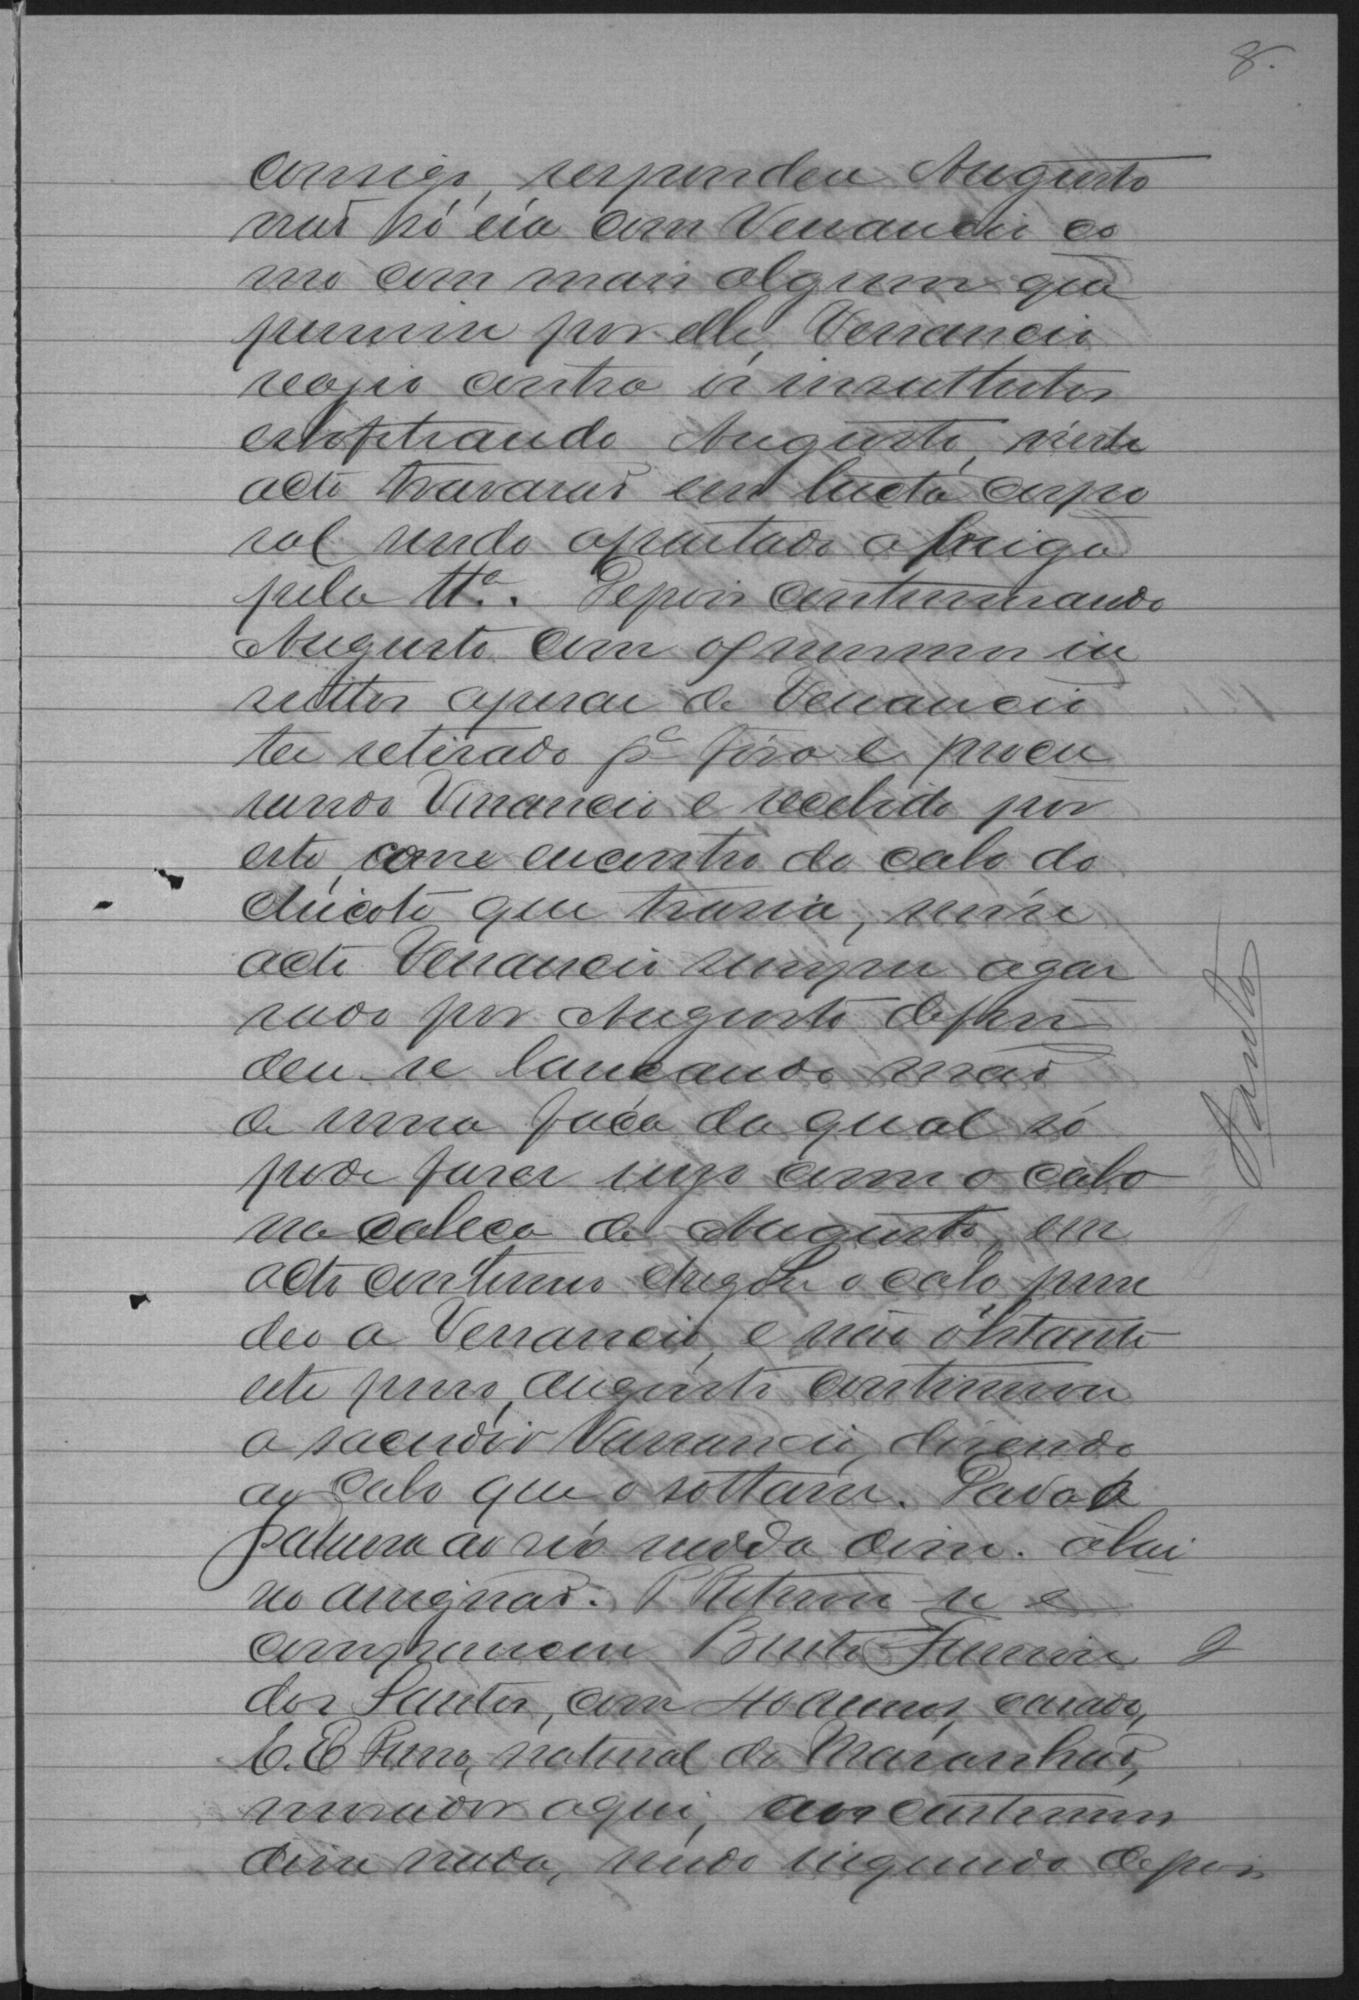 8.
comsigo, respondeu Augusto
não só éra com Venancio co
mo com mais algum que
punisse por elle, Venancio
reagio contra os insultos
esbofetiando Augusto, n'este
acto travarão em lucta corpo
ral sendo apartado a briga
pela tta. Depois continuando
Augusto com os mesmos in
sultos apesar de Venancio
ter retirado pa fóra e procu
rando Venancio e recebido por
este, com e encontro do cabo do
chicote que trasia, n'esse
acto Venancio sempre agar
rado por Augusto defen
deu-se lançando mão
de uma faca da qual só
pode faser uso com o cabo
na cabeça de Augusto, em
acto continuo chegou o cabo pren
deo a Venancio, e não obstante
este preso, Augusto continuou
a sacudir Venancio, disendo
ao cabo que o soltasse. Dada a
palavra ao réo nada disse.
no assignão. Retirou-se e
compareceu Bento
dos Santos, com 40 annos, casado,
natural do Maranhão,
morador aqui, aos costumes
disse nada, sendo inquerido depois
Santos